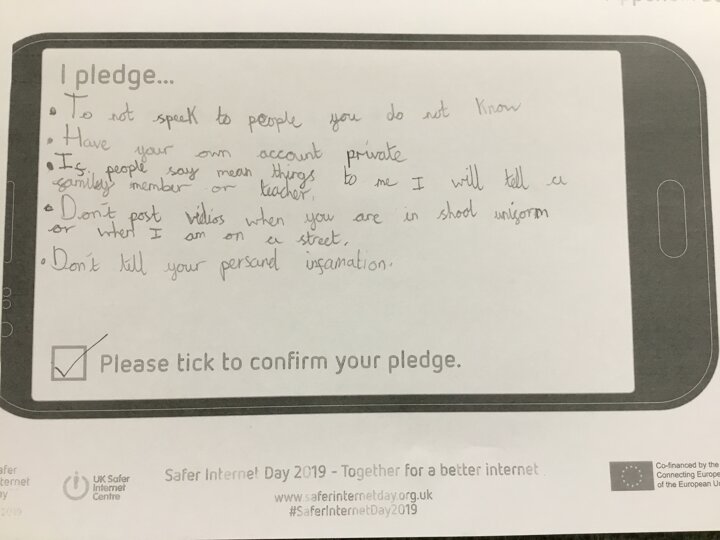 I pledge...
• To not speek to people you do not know
• Have your own account private
• If people say mean things to me I will tell a
familey member or teacher.
• Don't post vidios when you are in shool uniform
or when I am on a street.
• Don't tell your persanal infamation.
Please tick to confirm your pledge.
UK Safer
Internet
Centre
Safer Internet Day 2019 - Together for a better internet
www.saferinternetday.org.uk
#SaferInternetDay2019
Co-financed by the
Connecting Europe
of the European